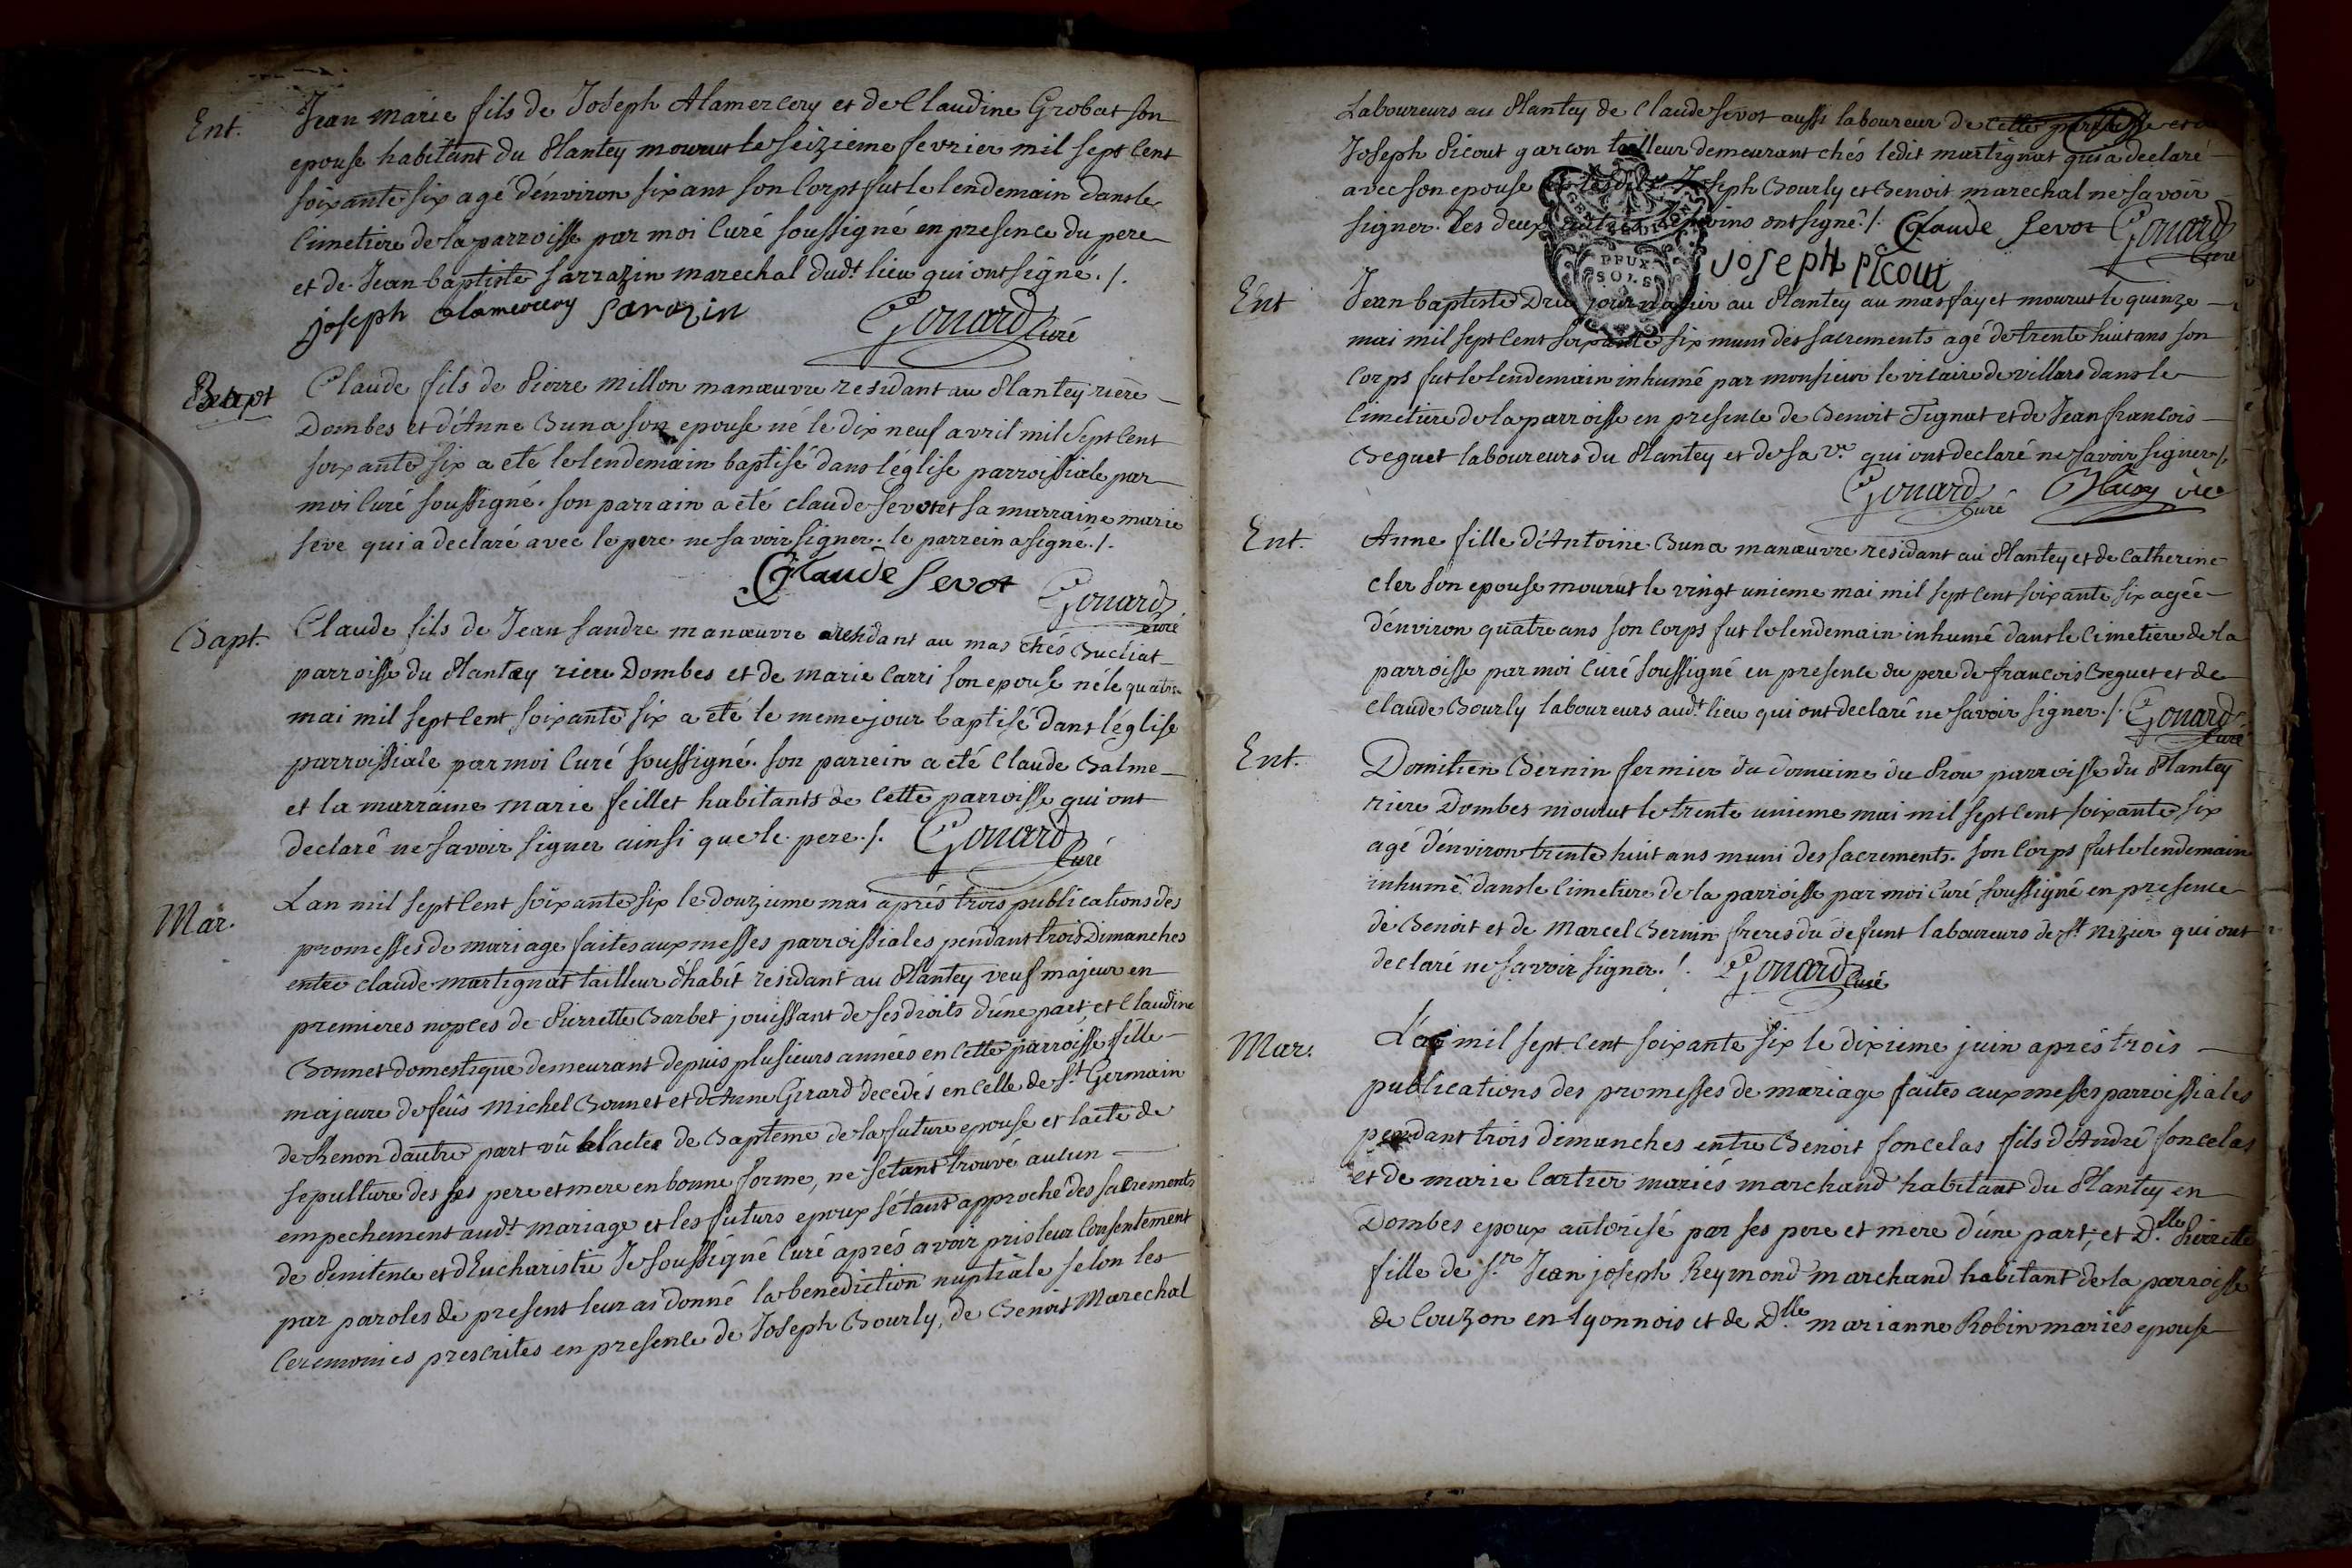 Ent.
Jean marie fils de Joseph Alamercery et de Claudine Grobat son
epouse habitant du Plantey mourut le seizieme fevrier mil sept cent
soixante six agé d'environ six ans son corps fut le lendemain dans le
cimetiere de la parroisse par moi curé soussigné en presence du pere
et de Jean baptiste Sarrazin marechal dudt lieu qui ont signé ./.
joseph alamercery Sarazin Gouard curé
Bapt
Claude fils de Pierre millon manœuvre residant au Plantey riere
Dombes et d'Anne Buna son epouse né le dix neuf avril mil sept cent
soixante six a eté le lendemain baptisé dans l'église parroissiale par
moi curé soussigné. son parrain a eté claude sevot et sa marraine marie
seve qui a declaré avec le pere ne savoir signer. le parrein a signé ./.
Claude sevot Gouard curé
Bapt.
Claude fils de Jean Sandre manœuvre residant au mas chés Buchat
parroisse du Plantay riere Dombes et de marie Carri son epouse né le quatre
mai mil sept cent soixante six a eté le meme jour baptisé dans l'église
parroissiale par moi curé soussigné. son parrein a eté Claude Balme
et la marraine marie feillet habitants de cette parroisse qui ont
declaré ne savoir signer ainsi que le pere ./. Gouard
curé
Mar.
Lan mil sept cent soixante six le douzieme mai aprés trois publications des
promesses de mariage faites aux messes parroissiales pendant trois Dimanches
entre claude martignat tailleur d'habit residant au Plantey veuf majeur en
premieres nopces de Pierrette Barbet jouissant de ses droits d'une part, et Claudine
Bonnet domestique demeurant depuis plusieurs années en cette parroisse fille
majeure de feus Michel Bonnet et d'Anne Girard decedés en celle de St Germain
de Renon d'autre part vû l'acte de Bapteme de la future epouse et lacte de
sepulture des ses pere et mere en bonne forme, ne setant trouvé aucun
empechement audt mariage et les futurs epoux s'étant approché des sacrements
de Penitence et d'Eucharistie Je soussigné curé aprés avoir pris leur consentement
par paroles de present leur ai donné la benediction nuptiale selon les
ceremonies prescrites en presence de Joseph Bourly, de Benoit Marechal
Laboureurs au Plantey de Claude Sevot aussi laboureur de cette parroisse et de
Joseph Picout garcon tailleur demeurant chés ledit martignat qui a declaré
avec son epouse Joseph Bourly et Benoit marechal ne savoir
signer. Les deux autres temoins ont signé ./. Claude sevot Gouard
curé
GEN
DEUX
SOLS
joseph picout
Ent
Jean baptiste Dru journalier au Plantey au mas fayet mourut le quinze
mai mil sept cent soixante six muni des sacrements agé de trente huit ans son
corps fut le lendemain inhumé par monsieur le vicaire de villars dans le
cimetiere de la parroisse en presence de Benoit Tignat et de Jean francois
Beguet laboureurs du Plantey et de sa ve qui ont declaré ne savoir signer ./.
Gouard curé vic
Ent.
Anne fille d'Antoine Buna manœuvre residant au Plantey et de Catherine
Cler son epouse mourut le vingt unieme mai mil sept cent soixante six agée
d'environ quatre ans son corps fut le lendemain inhumé dans le cimetiere de la
parroisse par moi curé soussigné en presence du pere de francois Beguet et de
Claude Bourly laboureurs audt lieu qui ont declaré ne savoir signer ./. Gouard
curé
Ent.
Domitien Bernin fermier du domaine du Prou parroisse du Plantey
riere Dombes mourut le trente unieme mai mil sept cent soixante six
agé d'environ trente huit ans muni des sacrements. son corps fut le lendemain
inhumé dans le cimetiere de la parroisse par moi curé soussigné en presence
de Benoit et de Marcel Bernin freres du defunt laboureurs de St Nizier qui ont
declaré ne savoir signer ./. Gouard curé
Mar.
L'an mil sept cent soixante six le dixieme juin aprés trois
publications des promesses de mariage faites aux messes parroissiales
pendant trois dimanches entre Benoit foncelas fils d'André foncelas
et de marie Cartier mariés marchand habitant du Plantey en
Dombes epoux autorisé par ses pere et mere d'une part, et Dlle Pierrette
fille de Sr Jean joseph Reymond marchand habitant de la parroisse
de Couzon en lyonnois et de Dlle marianne Robin mariés epouse